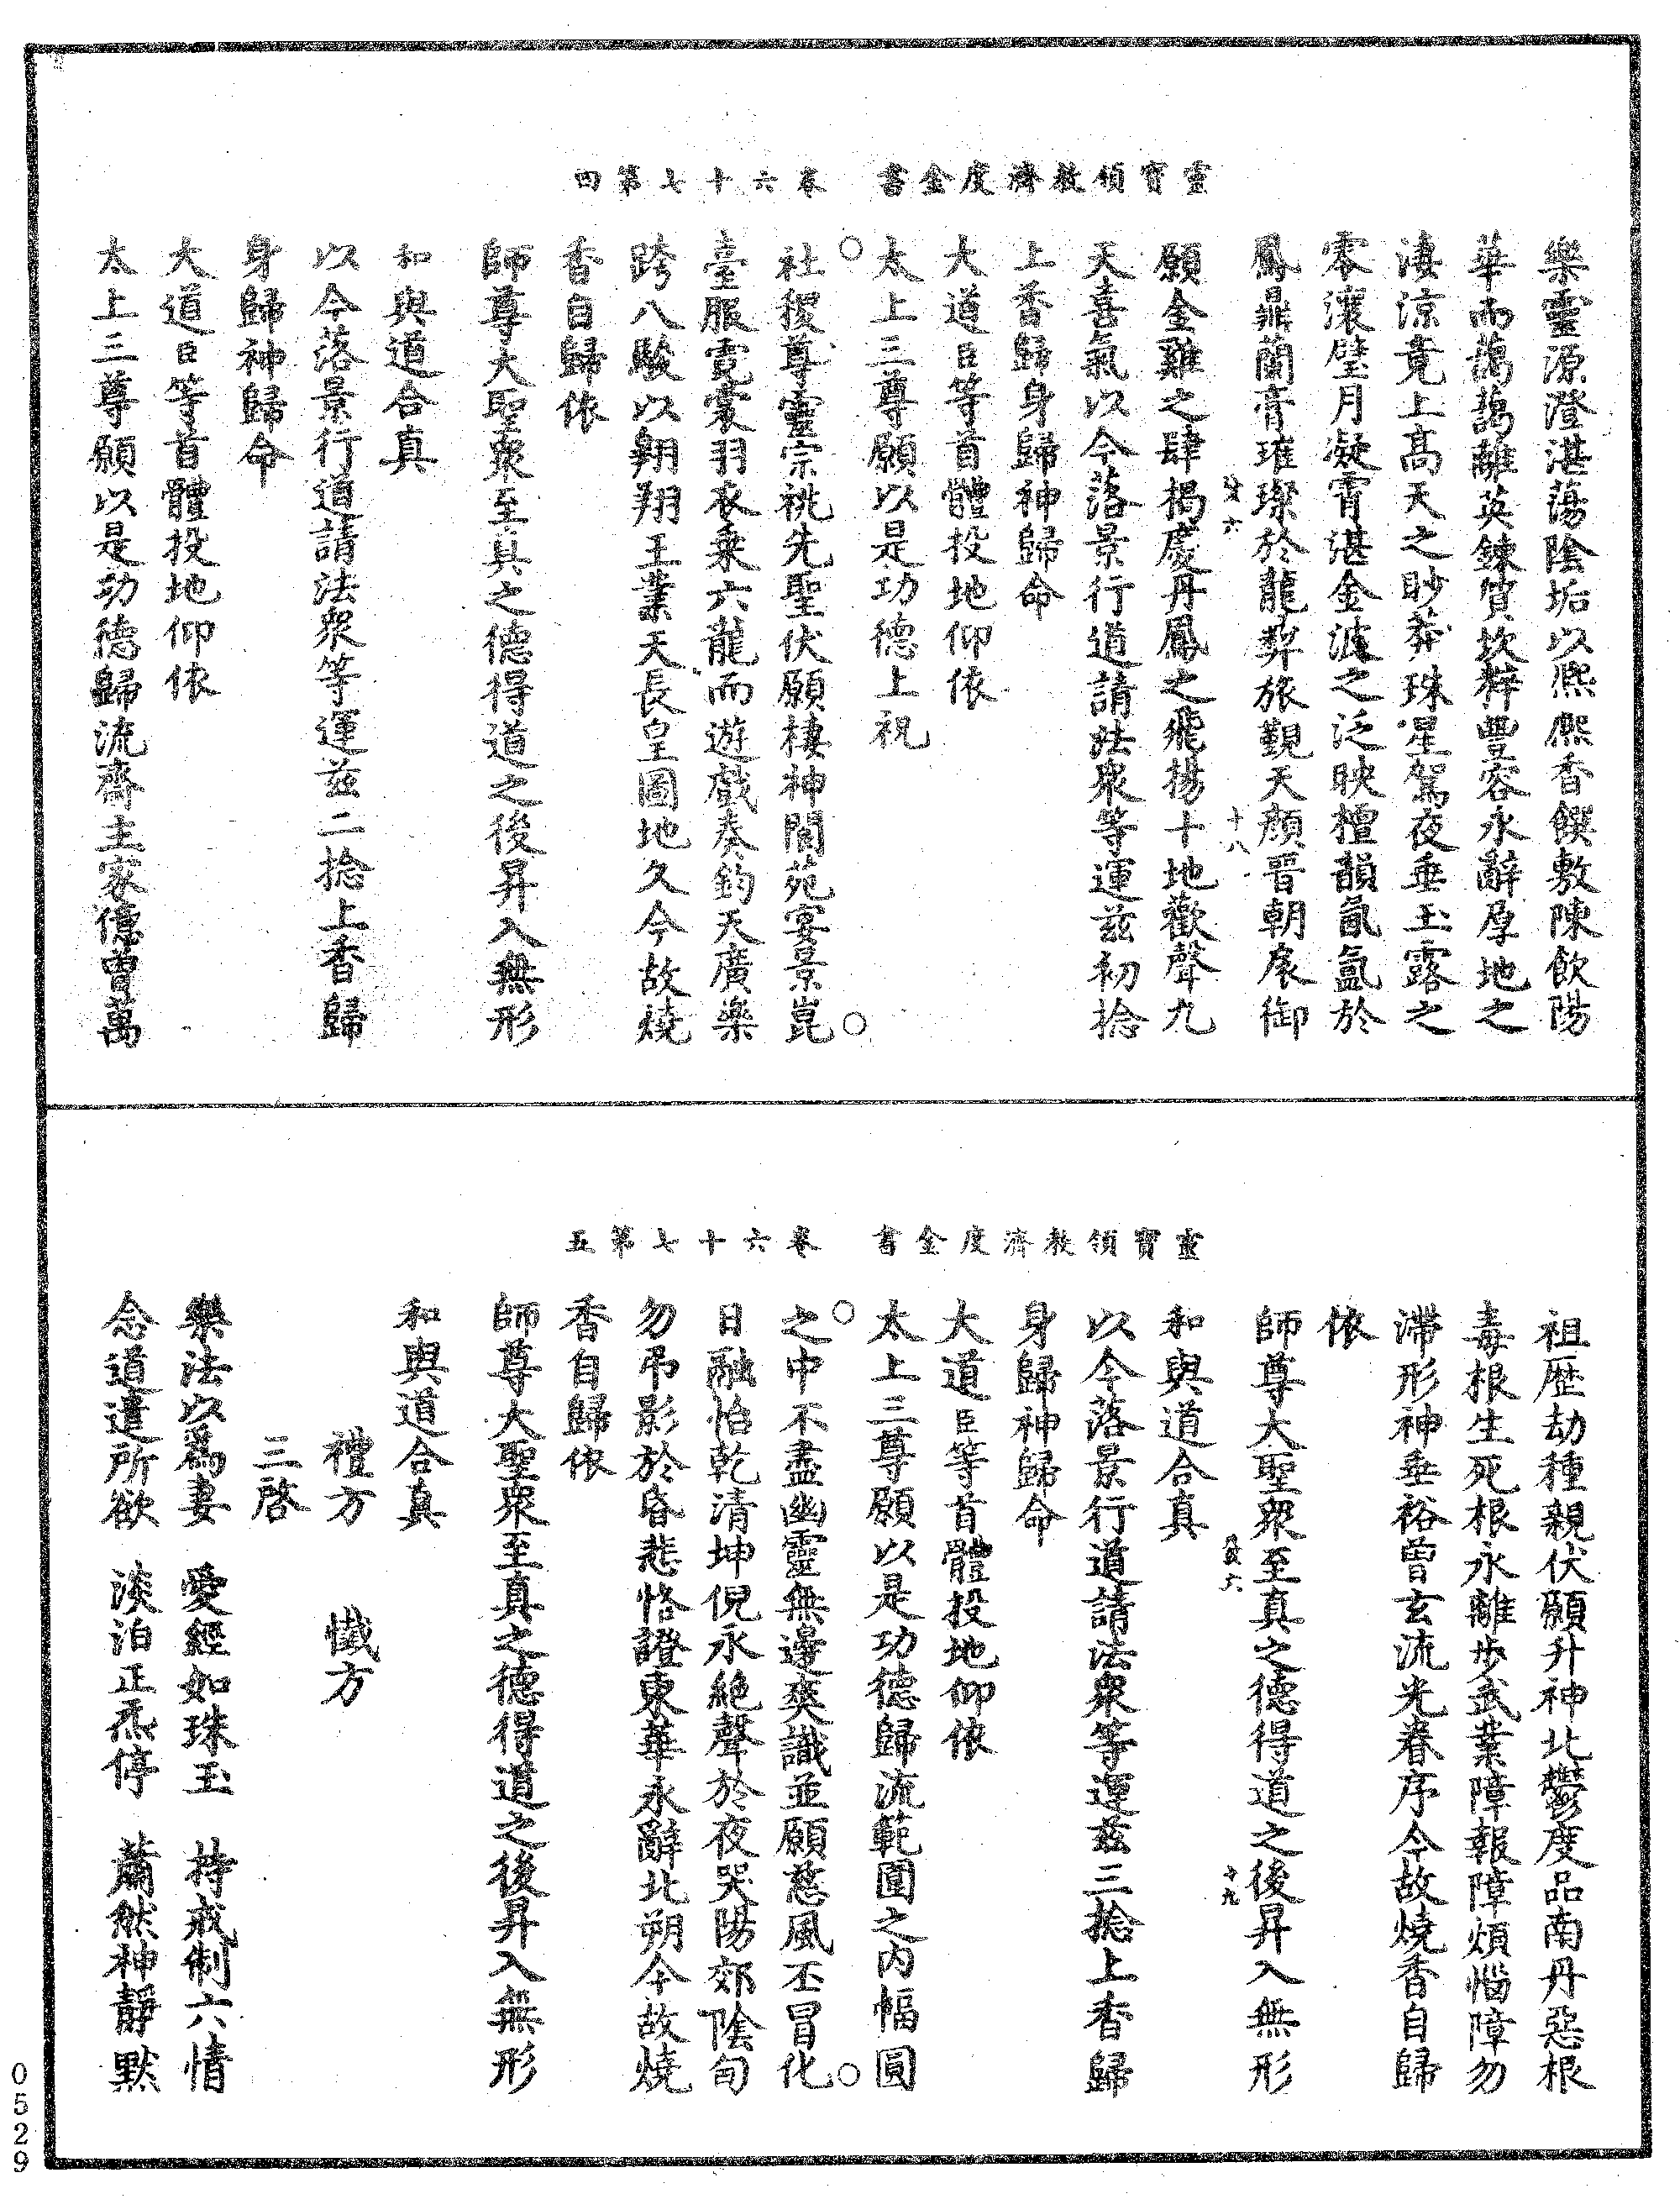 靈寶領教濟度金書　卷六十七第四
樂靈源澄湛蕩陰垢以熙熙香饌敷陳飲陽
華而藹藹離英鍊質坎粹豐容永辭厚地之
淒涼竟上高天之眇莽珠星駕夜垂玉露之
零瀼壁月凝霄湛金波之泛映檀韻氤氳於
鳳鼎蘭膏璀璨於龍羿旅覲天顏晋朝扆御
十八
願金雞之肆揭慶丹鳳之飛揚十地歡聲九
天喜氣以今落景行道請法衆等運兹初捻
上香歸身歸神歸命
大道臣等首體投地仰依
太上三尊願以是功德上祝
○
社稷尊靈宗祧先聖伏願棲神閬苑宴景崑
臺服霓裳羽衣乗六龍而遊戲奏鈞天廣樂
跨八駿以翱翔王業天長皇圖地久今故燒
香自歸依
師尊大聖衆至真之德得道之後昇入無形
和與道合真
以今落景行道請法衆等運兹二捻上香歸
身歸神歸命
大道臣等首體投地仰依
太上三尊願以是功德歸流齋主家億曾萬
靈寶領教濟度金書　卷六十七第五
祖歷劫種親伏願升神北鬱度品南丹惡根
毒根生死根永離步武業障報障煩惱障勿
滯形神垂裕曾玄流光眷序今故燒香自歸
依
師尊大聖衆至真之德得道之後昇入無形
十九
和與道合真
以今落景行道請法衆等運兹三捻上香歸
身歸神歸命
大道臣等首體投地仰依
太上三尊願以是功德歸流範圍之內幅圓
○
之中不盡幽靈無邊爽識並願慈風丕冒化
日融怡乾清坤倪永絕聲於夜哭陽郊陰甸
勿弔影於昏悲恪證東華永辭北朔今故燒
香自歸依
師尊大聖衆至真之德得道之後昇入無形
和與道合真
禮方　懴方
三啓
樂法以爲妻　愛經如珠玉　持戒制六情
念道遣所欲　淡泊正炁停　蕭然神靜默
0529